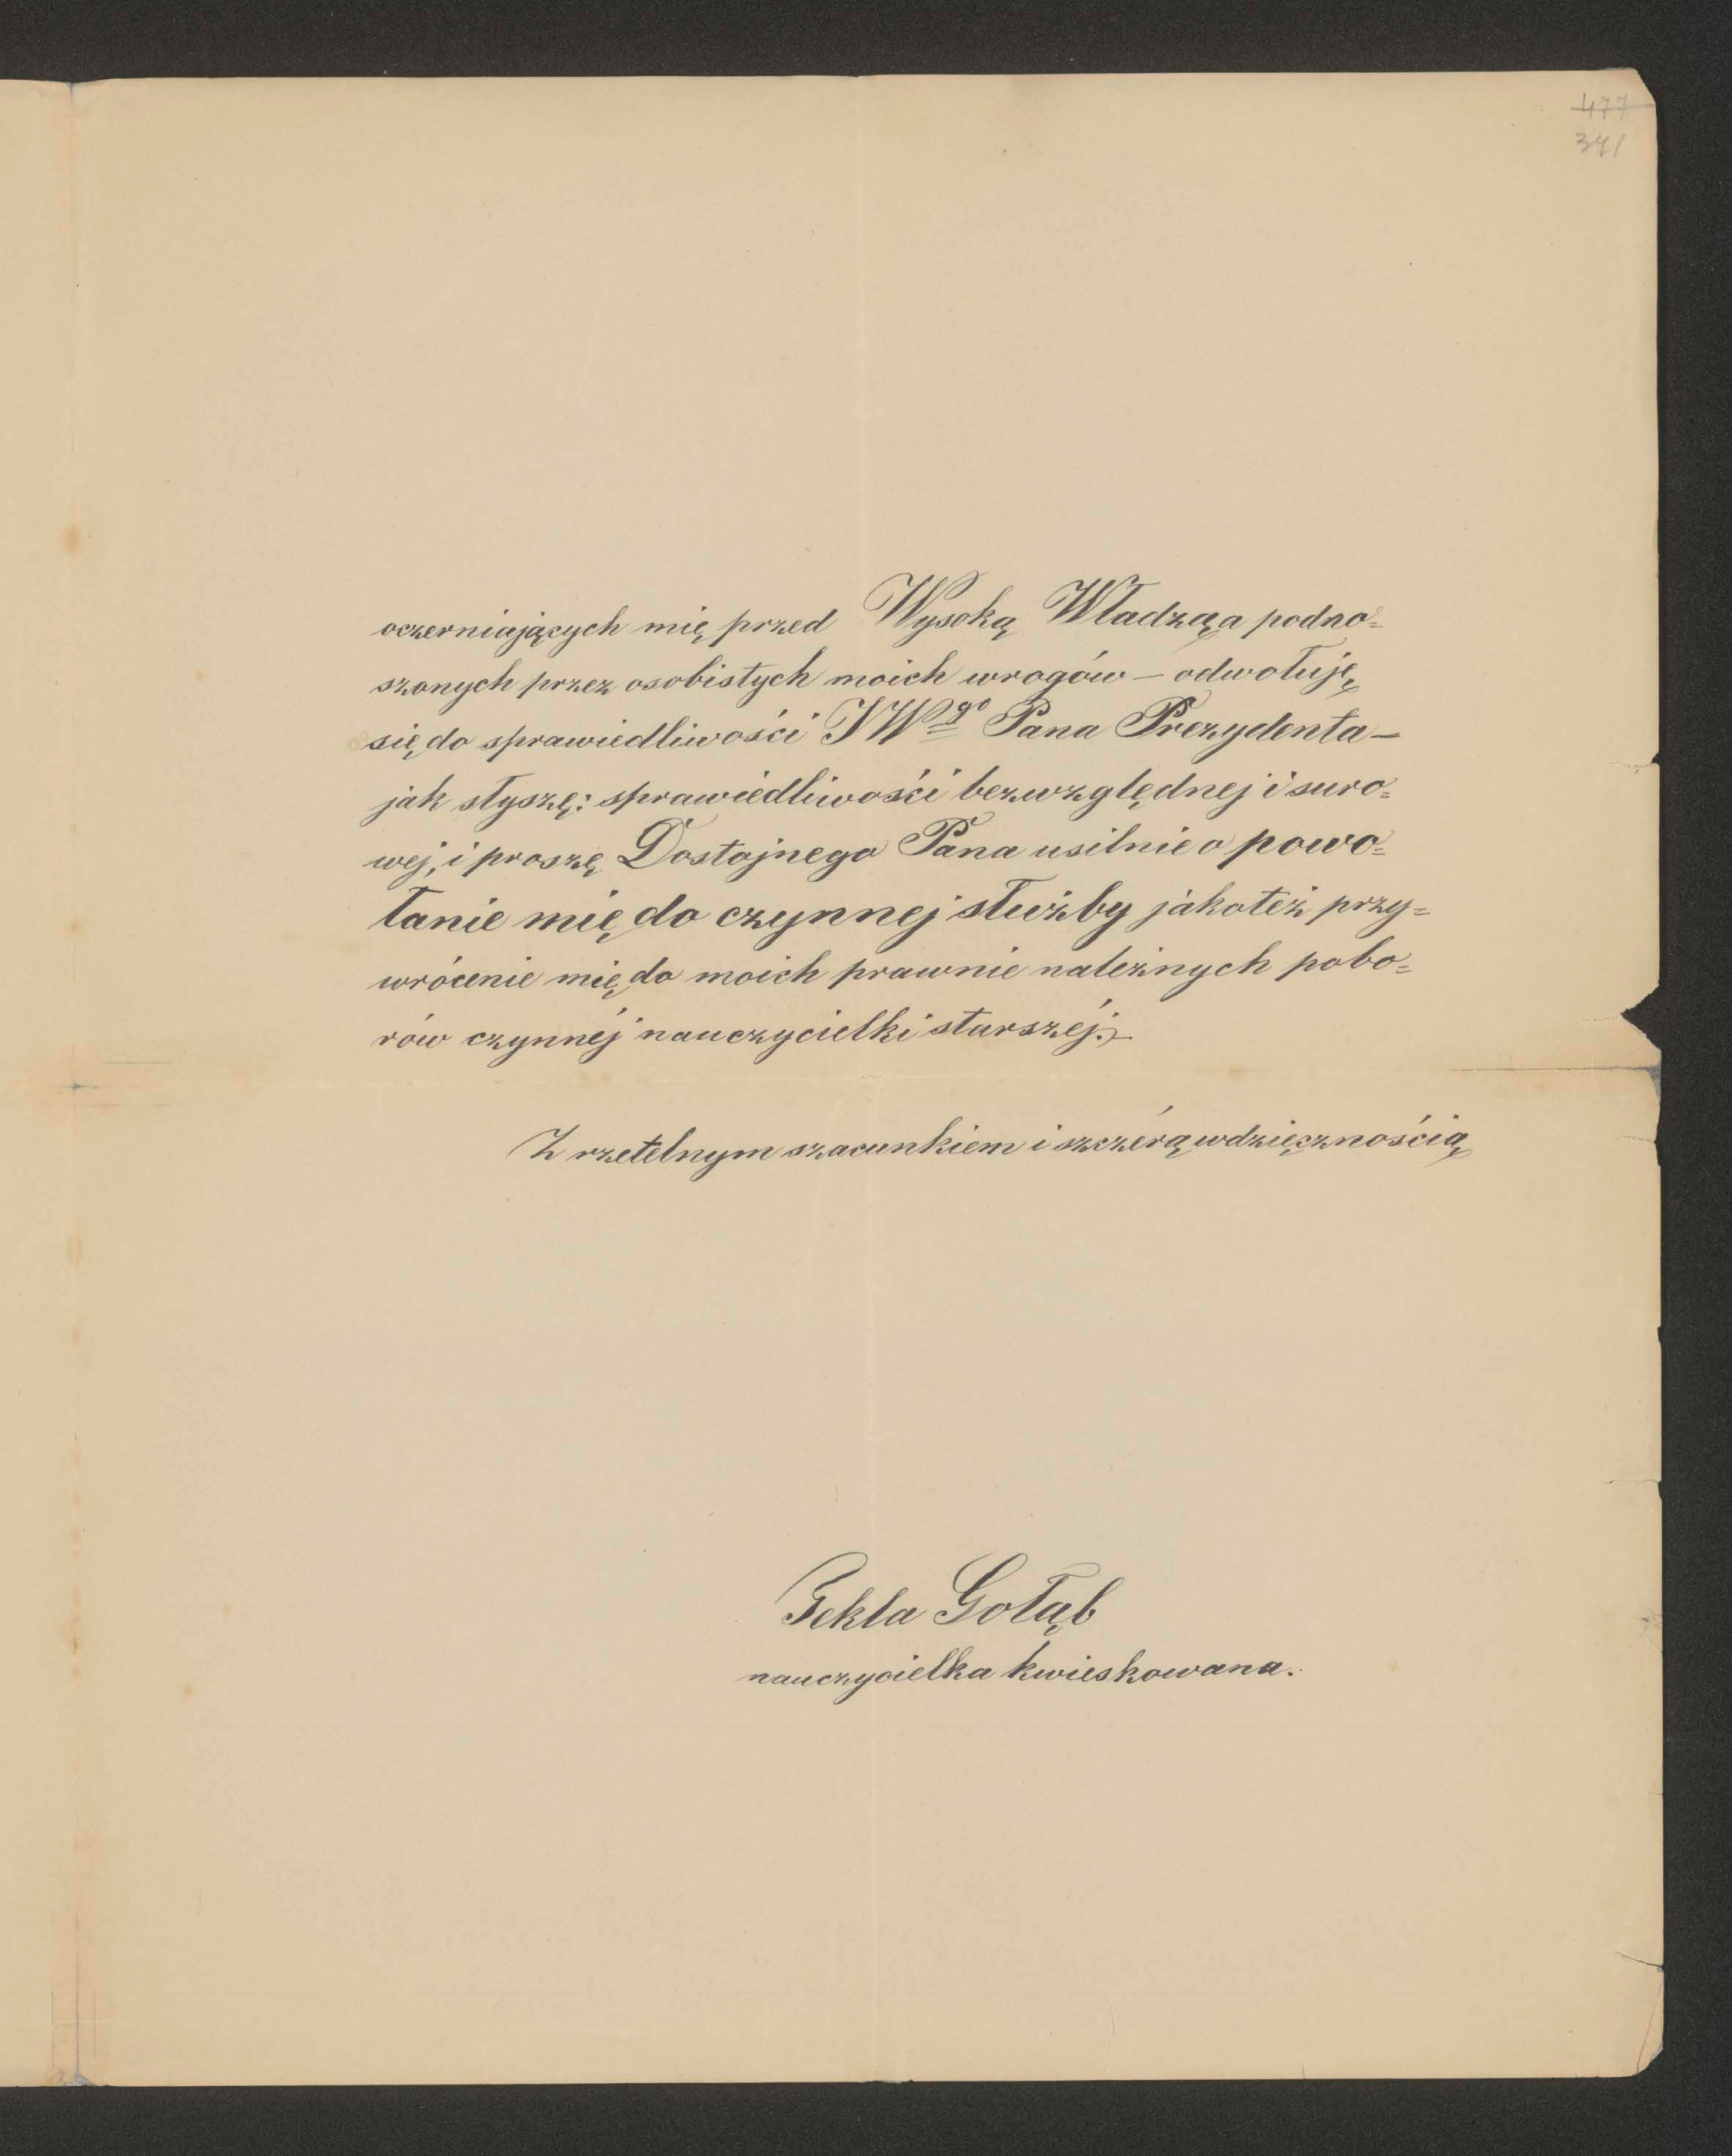 477
341
oczerniających mię przed Wysoką Władzą, a podno=
szonych przez osobistych moich wrogów — odwołuję
się do sprawiedliwości JWgo Pana Prezydenta —
jak słyszę: sprawiedliwości bezwzględnej i suro=
wej, i proszę Dostojnego Pana usilnie o powo=
łanie mię do czynnej służby jakoteż przy=
wrócenie mię do moich prawnie należnych pobo=
rów czynnéj nauczycielki starszéj.
Z rzetelnym szacunkiem i szczérą wdzięcznością
Tekla Gołąb
nauczycielka kwieskowana.